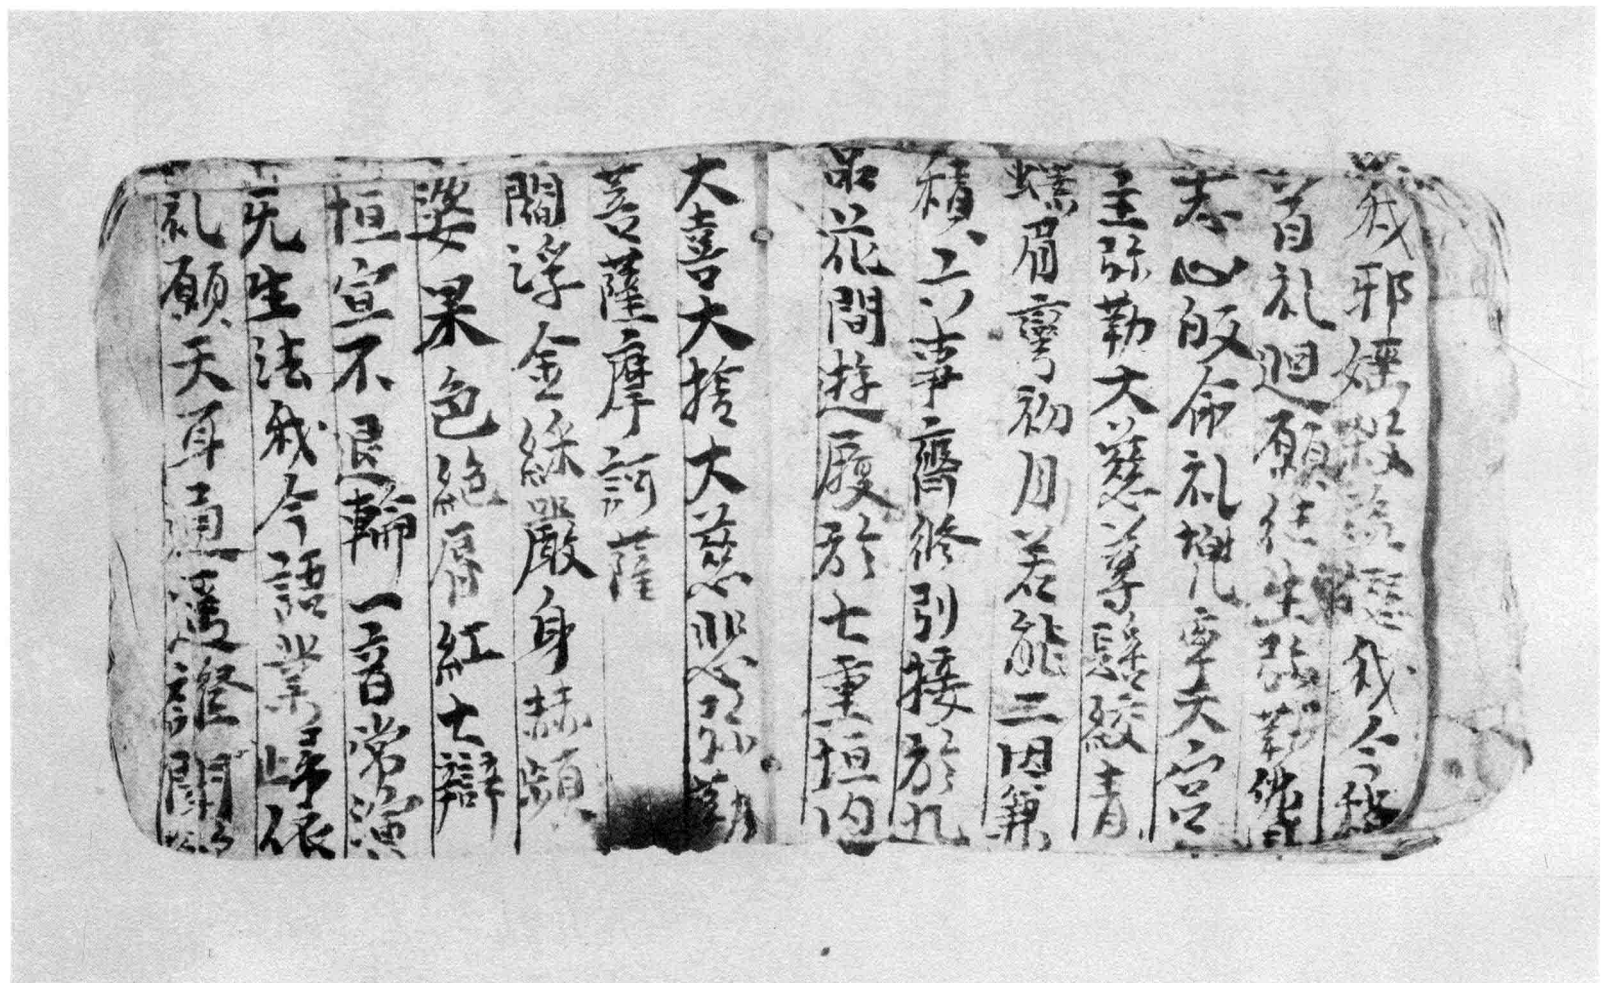 我邪婬殺盜愆我今稽
首礼迴願往生弥勒佛
志心皈命礼兠率天宮
主弥勒大慈尊髻絞青
螺眉彎初月若能三因兼
積六事齊修引接於九
品花間遊履於七重垣内
大喜大捨大慈悲弥勒
菩薩摩訶薩
閻浮金綵嚴身赫頻
婆果色絶脣紅七辯
恒宣不退輪一音常演
无生法我今語業歸依
礼願天耳通遥證聞